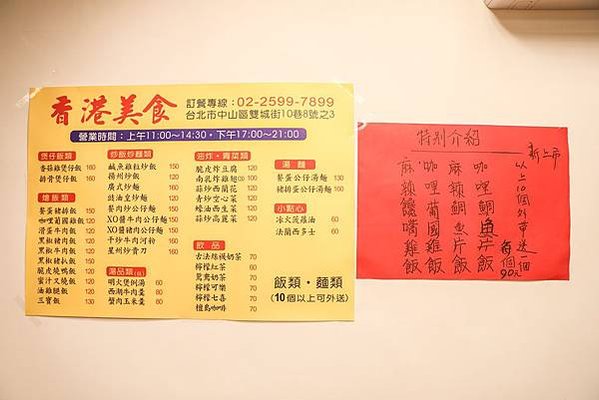 香港美食
訂餐專線：02-2599-7899
台北市中山區雙城街10巷8號之3
營業時間：上午11:00～14:30・下午17:00～21:00
煲仔飯類
香菇雞煲仔飯 160
排骨煲仔飯 160
燴飯類
餐蛋豬排飯 150
咖哩葡國雞飯 120
滑蛋牛肉飯 120
黑椒豬肉飯 120
黑椒牛肉飯 120
黑椒雞飯 120
黑椒豬扒飯 150
脆皮燒鴨飯 120
蜜汁叉燒飯 120
油雞腿飯 120
三寶飯 130
炒飯炒麵類
鹹魚雞粒炒飯 150
揚州炒飯 120
廣式炒麵 150
豉油皇炒麵 120
餐肉炒公仔麵 120
XO醬牛肉公仔麵 150
XO醬豬肉公仔麵 150
干炒牛肉河粉 160
星州炒貴刁 160
湯品類
明火煲例湯 60
西湖牛肉羹 80
蟹肉玉米羹 60
油炸・青菜類
脆皮炸豆腐 120
蒜炒西蘭花 120
青炒空心菜 120
蠔油西生菜 120
蒜炒高麗菜 120
飲品
古法絲襪奶茶 70
檸檬紅茶 60
鴛鴦奶茶 70
檸檬可樂 70
檸檬七喜 70
湯麵
餐蛋公仔湯麵 130
豬排蛋公仔湯麵 130
小點心
冰火菠蘿油 60
法蘭西多士 60
飯類・麵類
(10個以上可外送)
特別介紹
新上市
以上10個外帶送一個
每個90元
咖哩鯛魚片飯
麻辣鯛魚片飯
咖哩葡國雞飯
麻辣饞嘴雞飯